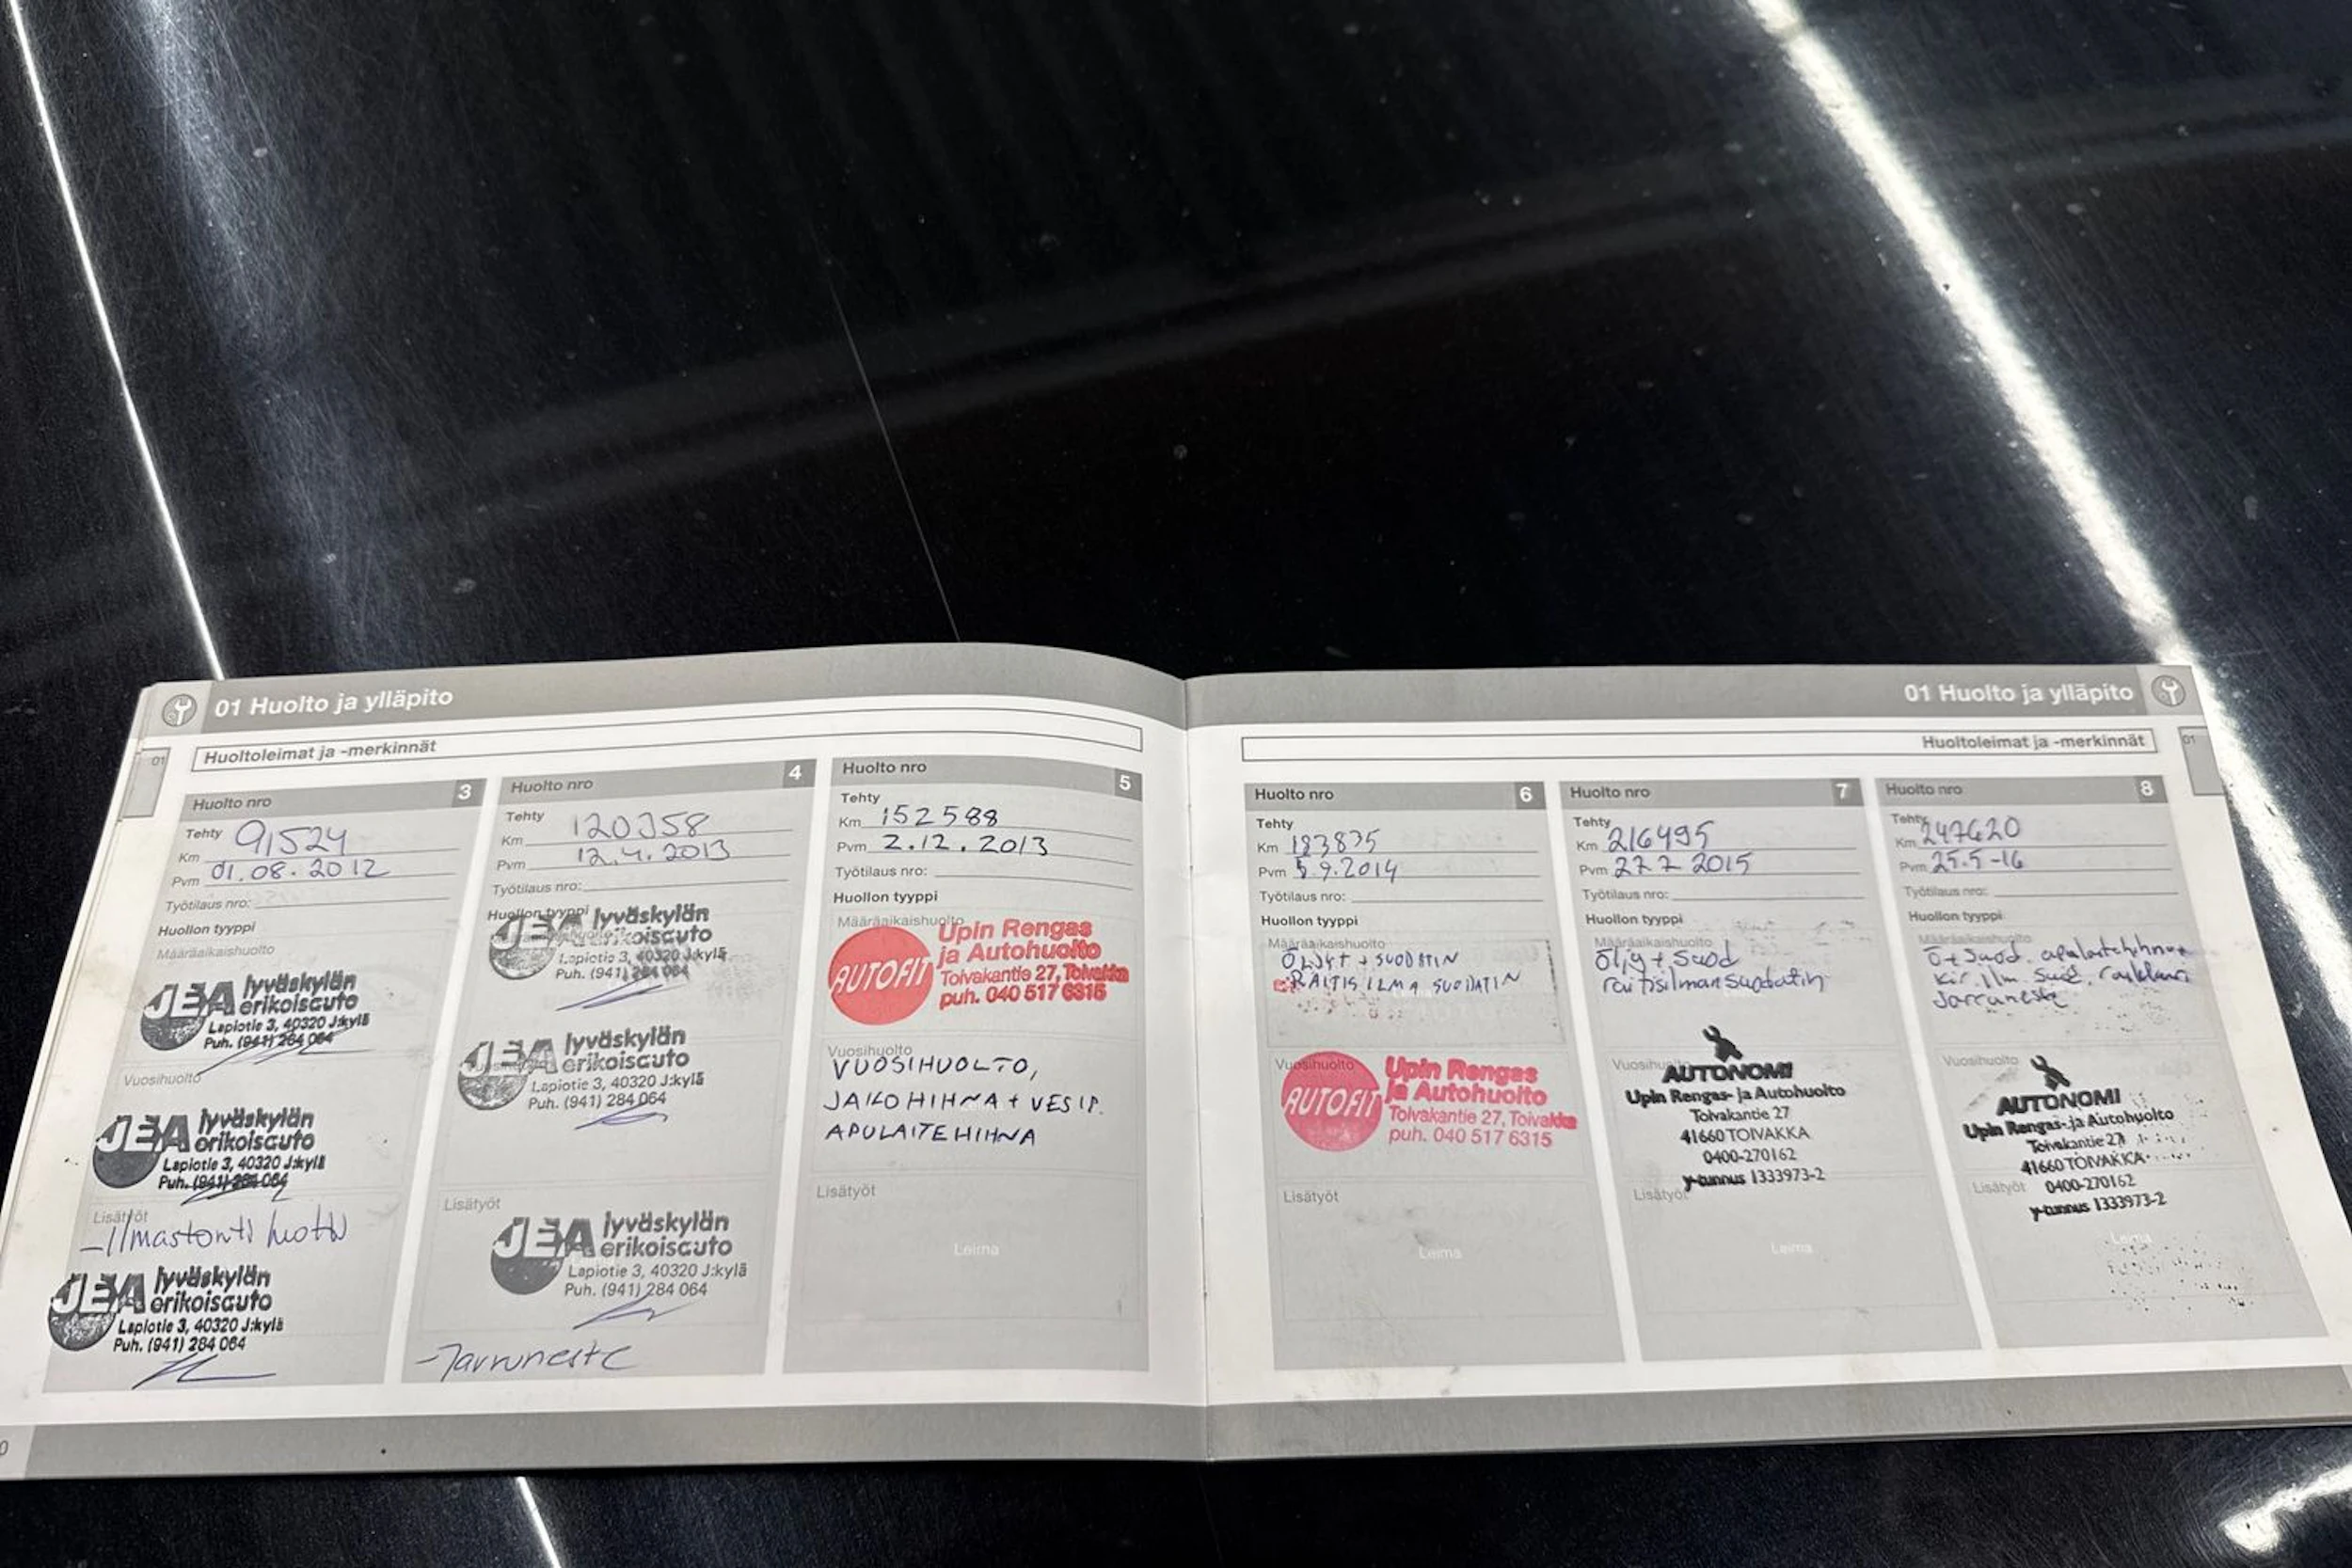 01 Huolto ja ylläpito
01
Huoltoleimat ja -merkinnät
Huolto nro 3
Tehty
Km 91524
Pvm 01.08.2012
Työtilaus nro:
Huollon tyyppi
Määräaikaishuolto
JEA Jyväskylän
erikoisauto
Lapiotie 3, 40320 J:kylä
Puh. (941) 284 064
Vuosihuolto
JEA Jyväskylän
erikoisauto
Lapiotie 3, 40320 J:kylä
Puh. (941) 284 064
Lisätyöt
- Ilmastointi huolto
JEA Jyväskylän
erikoisauto
Lapiotie 3, 40320 J:kylä
Puh. (941) 284 064
Huolto nro 4
Tehty
Km 120358
Pvm 12.4.2013
Työtilaus nro:
Huollon tyyppi
JEA Jyväskylän
erikoisauto
Lapiotie 3, 40320 J:kylä
Puh. (941) 284 064
Vuosihuolto
JEA Jyväskylän
erikoisauto
Lapiotie 3, 40320 J:kylä
Puh. (941) 284 064
Lisätyöt
JEA Jyväskylän
erikoisauto
Lapiotie 3, 40320 J:kylä
Puh. (941) 284 064
- Jarruneste
Huolto nro 5
Tehty
Km 152588
Pvm 2.12.2013
Työtilaus nro:
Huollon tyyppi
Määräaikaishuolto
AUTOFIT
Upin Rengas
ja Autohuolto
Toivakantie 27, Toivakka
puh. 040 517 6315
Vuosihuolto
VUOSIHUOLTO,
JAKOHIHNA + VESIP.
APULAITEHIHNA
Lisätyöt
Leima
01 Huolto ja ylläpito
01
Huoltoleimat ja -merkinnät
Huolto nro 6
Tehty
Km 183835
Pvm 5.9.2014
Työtilaus nro:
Huollon tyyppi
Määräaikaishuolto
ÖLJYT + SUODATIN
RAITISILMA SUODATIN
Vuosihuolto
AUTOFIT
Upin Rengas
ja Autohuolto
Toivakantie 27, Toivakka
puh. 040 517 6315
Lisätyöt
Leima
Huolto nro 7
Tehty
Km 216495
Pvm 27 7 2015
Työtilaus nro:
Huollon tyyppi
Määräaikaishuolto
Öljy + Suod
raitisilmansuodatin
Vuosihuolto
AUTONOMI
Upin Rengas- ja Autohuolto
Toivakantie 27
41660 TOIVAKKA
0400-270162
y-tunnus 1333973-2
Lisätyöt
Leima
Huolto nro 8
Tehty
Km 247620
Pvm 25.5-16
Työtilaus nro:
Huollon tyyppi
Määräaikaishuolto
Ö+Suod. apulaitehihna
ilm. Suod.
Jarruneste
Vuosihuolto
AUTONOMI
Upin Rengas- ja Autohuolto
Toivakantie 27
41660 TOIVAKKA
0400-270162
y-tunnus 1333973-2
Lisätyöt
Leima